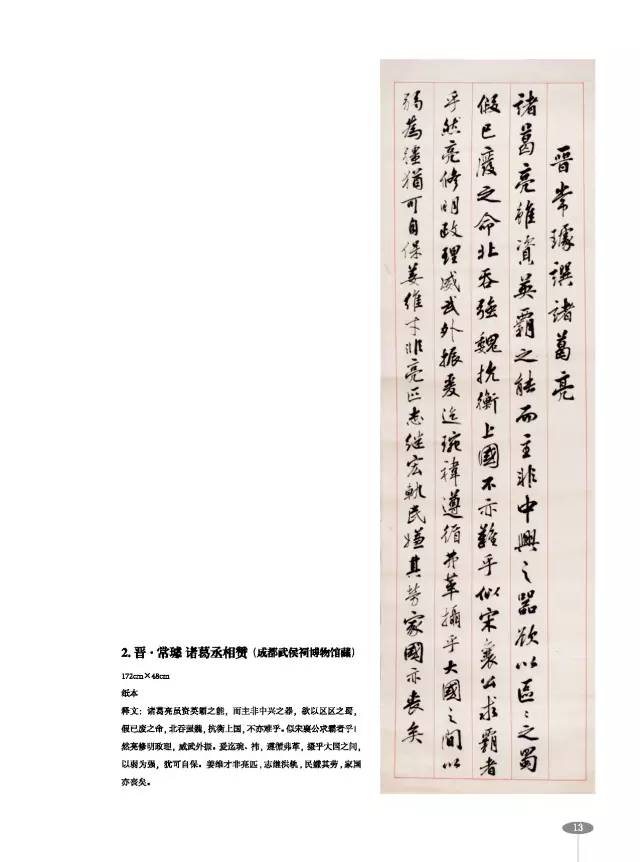 晉常璩譔諸葛亮
諸葛亮雖資英霸之能而主非中興之器欲以區之蜀
假已廢之命北吞強魏抗衡上國不亦難乎似宋襄公求霸者
乎然亮修明政理威武外振爰迄琬禕遵循弗革攝乎大國之間以
弱為彊猶可自保姜維才非亮匹志继宏軌民嫌其勞家國亦喪矣
2. 晋·常璩 诸葛丞相赞（成都武侯祠博物馆藏）
172cm×48cm
纸本
释文：诸葛亮虽资英霸之能，而主非中兴之器，欲以区区之蜀，
假已废之命，北吞强魏，抗衡上国，不亦难乎。似宋襄公求霸者乎！
然亮修明政理，威武外振。爰迄琬、祎，遵循弗革，摄乎大国之间，
以弱为强，犹可自保。姜维才非亮匹，志继洪轨，民嫌其劳，家国
亦丧矣。
13